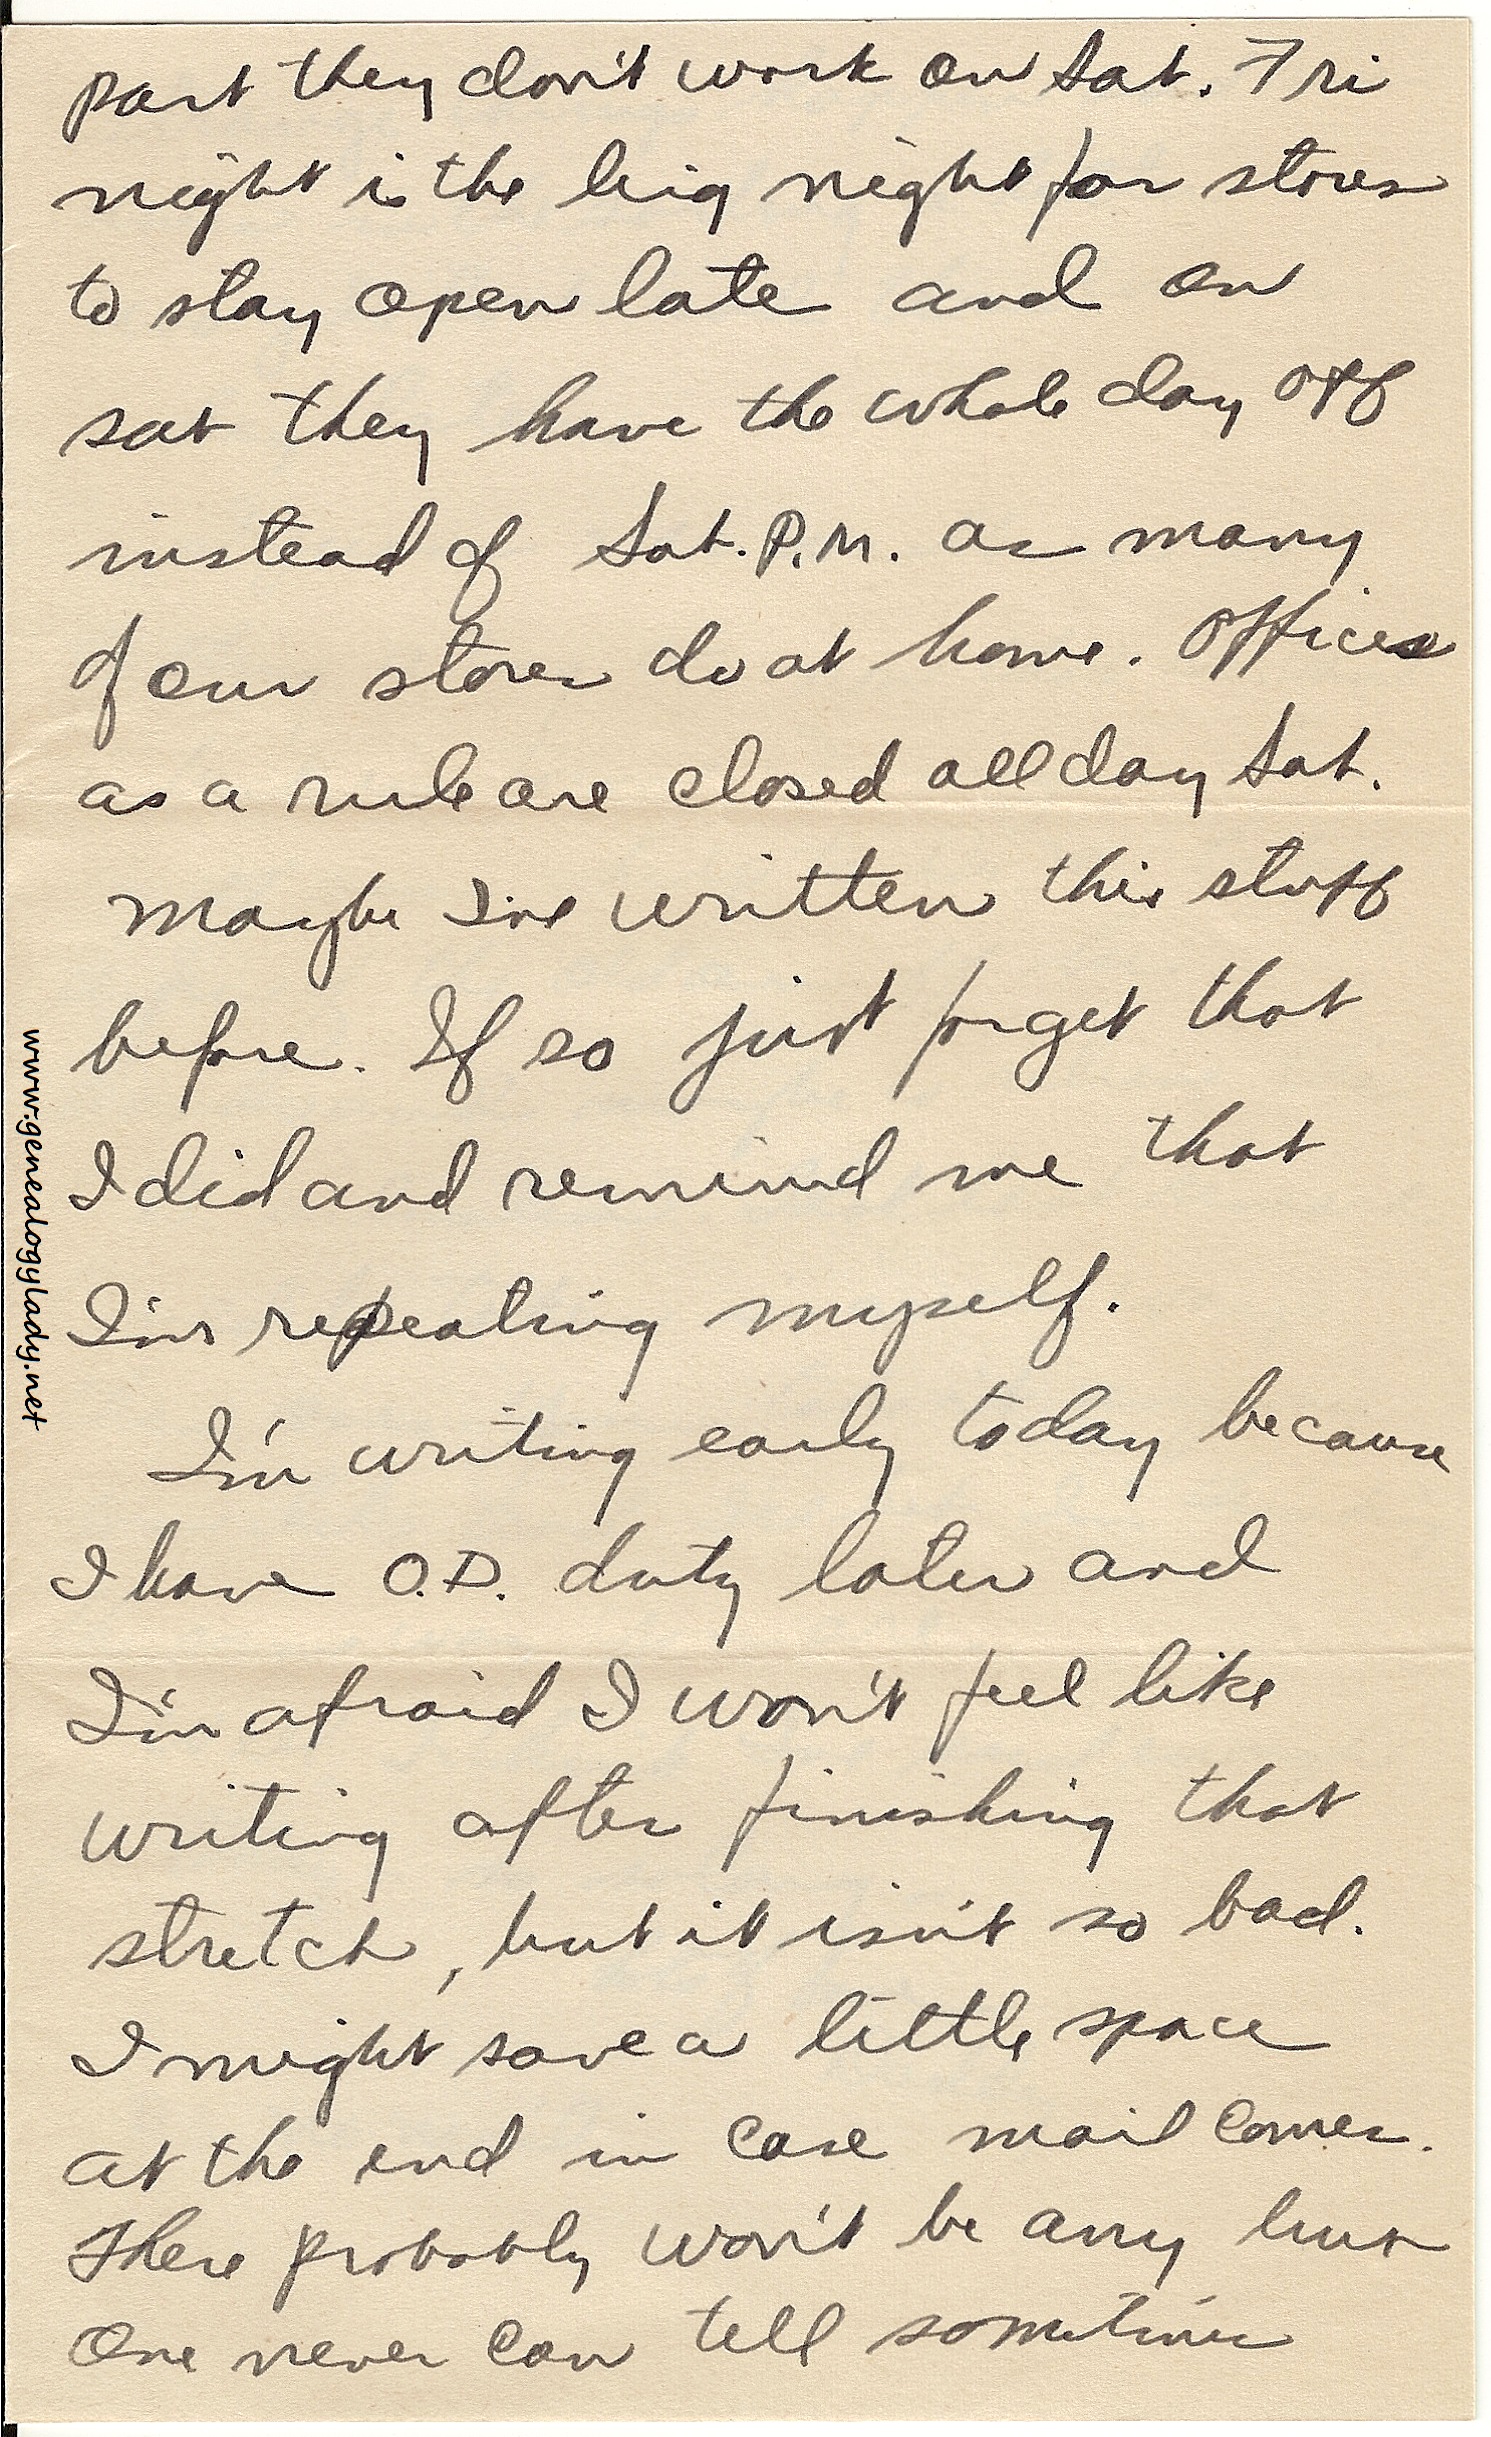 part they don't work on Sat. Fri
night is the big night for stores
to stay open late and on
sat they have the whole day off
instead of Sat. P.M. as many
of our stores do at home. Offices
as a rule are closed all day Sat.
Maybe I've written this stuff
before. If so just forget that
I did and remind me that
I'm repeating myself.
I'm writing early today because
I have O.D. duty later and
I'm afraid I won't feel like
writing after finishing that
stretch, but it isn't so bad.
I might save a little space
at the end in case mail comes.
There probably won't be any but
one never can tell sometimes
www.genealogylady.net